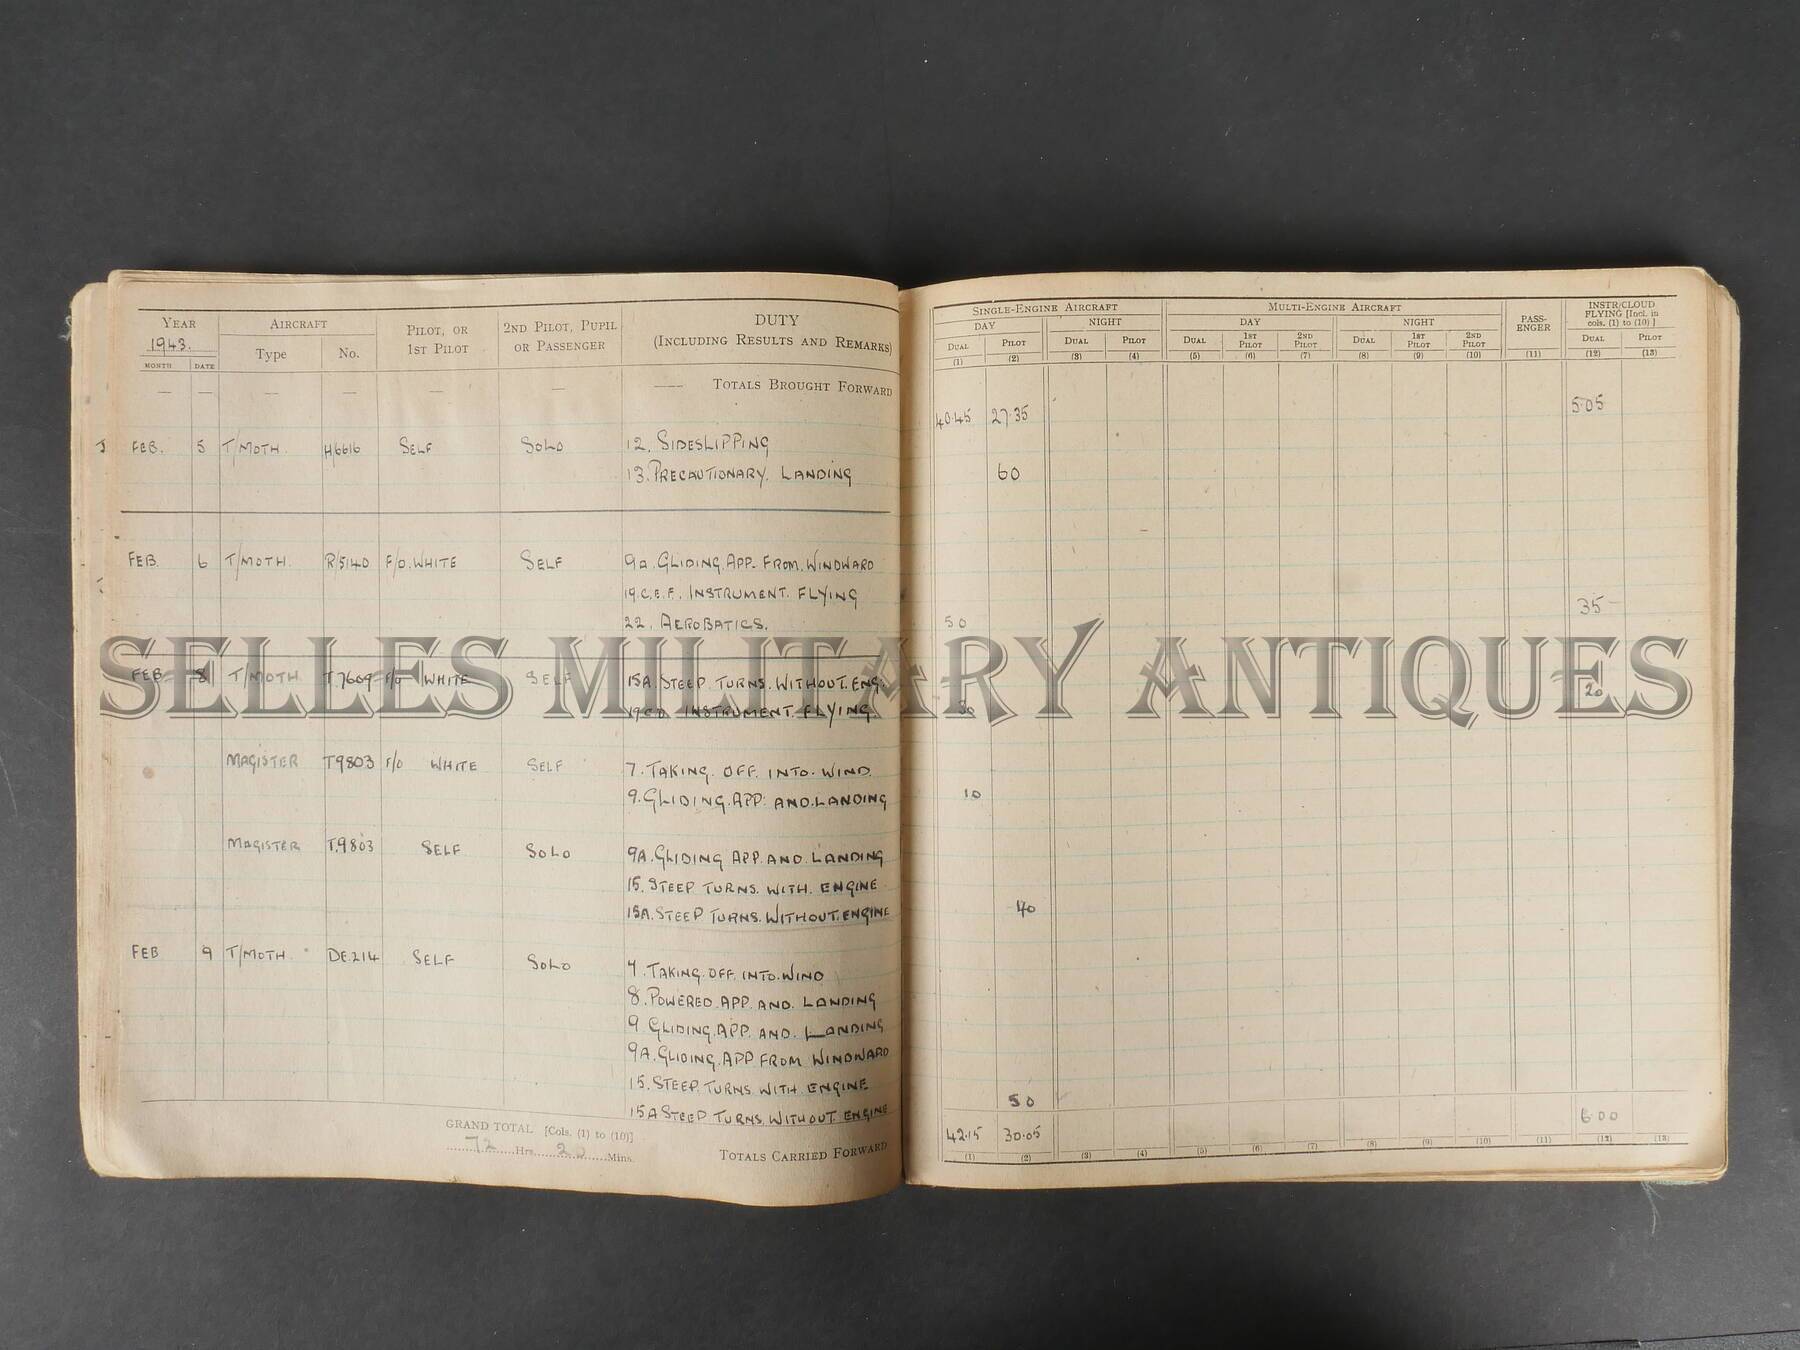 YEAR AIRCRAFT PILOT, OR 1ST PILOT 2ND PILOT, PUPIL OR PASSENGER DUTY (INCLUDING RESULTS AND REMARKS)
1943. Type No.
MONTH DATE
— — — — — — —— TOTALS BROUGHT FORWARD
FEB. 5 T/MOTH. H/6616 SELF SOLO 12. SIDESLIPPING
13. PRECAUTIONARY. LANDING
FEB. 6 T/MOTH. R/5140 F/O. WHITE SELF 9a. GLIDING. APP. FROM. WINDWARD
19. C.E.F. INSTRUMENT. FLYING
22. AEROBATICS.
FEB 8 T/MOTH T.7609 F/O WHITE SELF 15A. STEEP. TURNS. WITHOUT. ENG.
INSTRUMENT. FLYING.
MAGISTER T9803 F/O WHITE SELF 7. TAKING. OFF. INTO. WIND.
9. GLIDING. APP. AND. LANDING
MAGISTER T.9803 SELF SOLO 9A. GLIDING APP. AND. LANDING
15. STEEP. TURNS. WITH. ENGINE
15A. STEEP TURNS. WITHOUT. ENGINE
FEB 9 T/MOTH. DE.214 SELF SOLO 7. TAKING. OFF. INTO. WIND
8. POWERED. APP. AND. LANDING
9 GLIDING. APP. AND. LANDING
9A. GLIDING. APP FROM WINDWARD
15. STEEP. TURNS WITH ENGINE
15A STEEP TURNS. WITHOUT. ENGINE
GRAND TOTAL [Cols. (1) to (10)]
72 Hrs. 20 Mins.
TOTALS CARRIED FORWARD
SINGLE-ENGINE AIRCRAFT MULTI-ENGINE AIRCRAFT PASS-ENGER INSTR/CLOUD FLYING [Incl. in cols. (1) to (10)]
DAY NIGHT DAY NIGHT
DUAL PILOT DUAL PILOT DUAL 1ST PILOT 2ND PILOT DUAL 1ST PILOT 2ND PILOT DUAL PILOT
(1) (2) (3) (4) (5) (6) (7) (8) (9) (10) (11) (12) (13)
40.45 27.35 5.05
60
50 35
30 20
10
40
50
42.15 30.05 6.00
(1) (2) (3) (4) (5) (6) (7) (8) (9) (10) (11) (12) (13)
SELLES MILITARY ANTIQUES